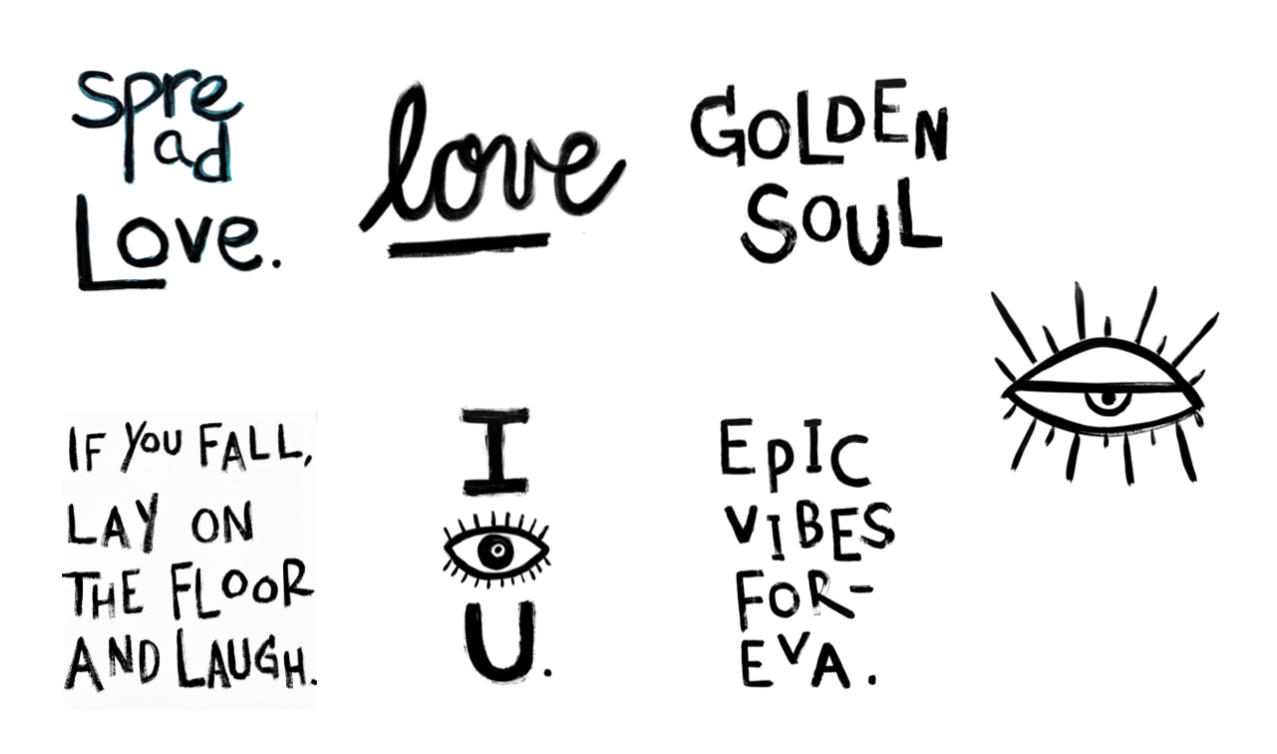 spre
ad
Love.
love
GOLDEN
SOUL
IF YOU FALL,
LAY ON
THE FLOOR
AND LAUGH.
I
U.
EPIC
VIBES
FOR-
EVA.